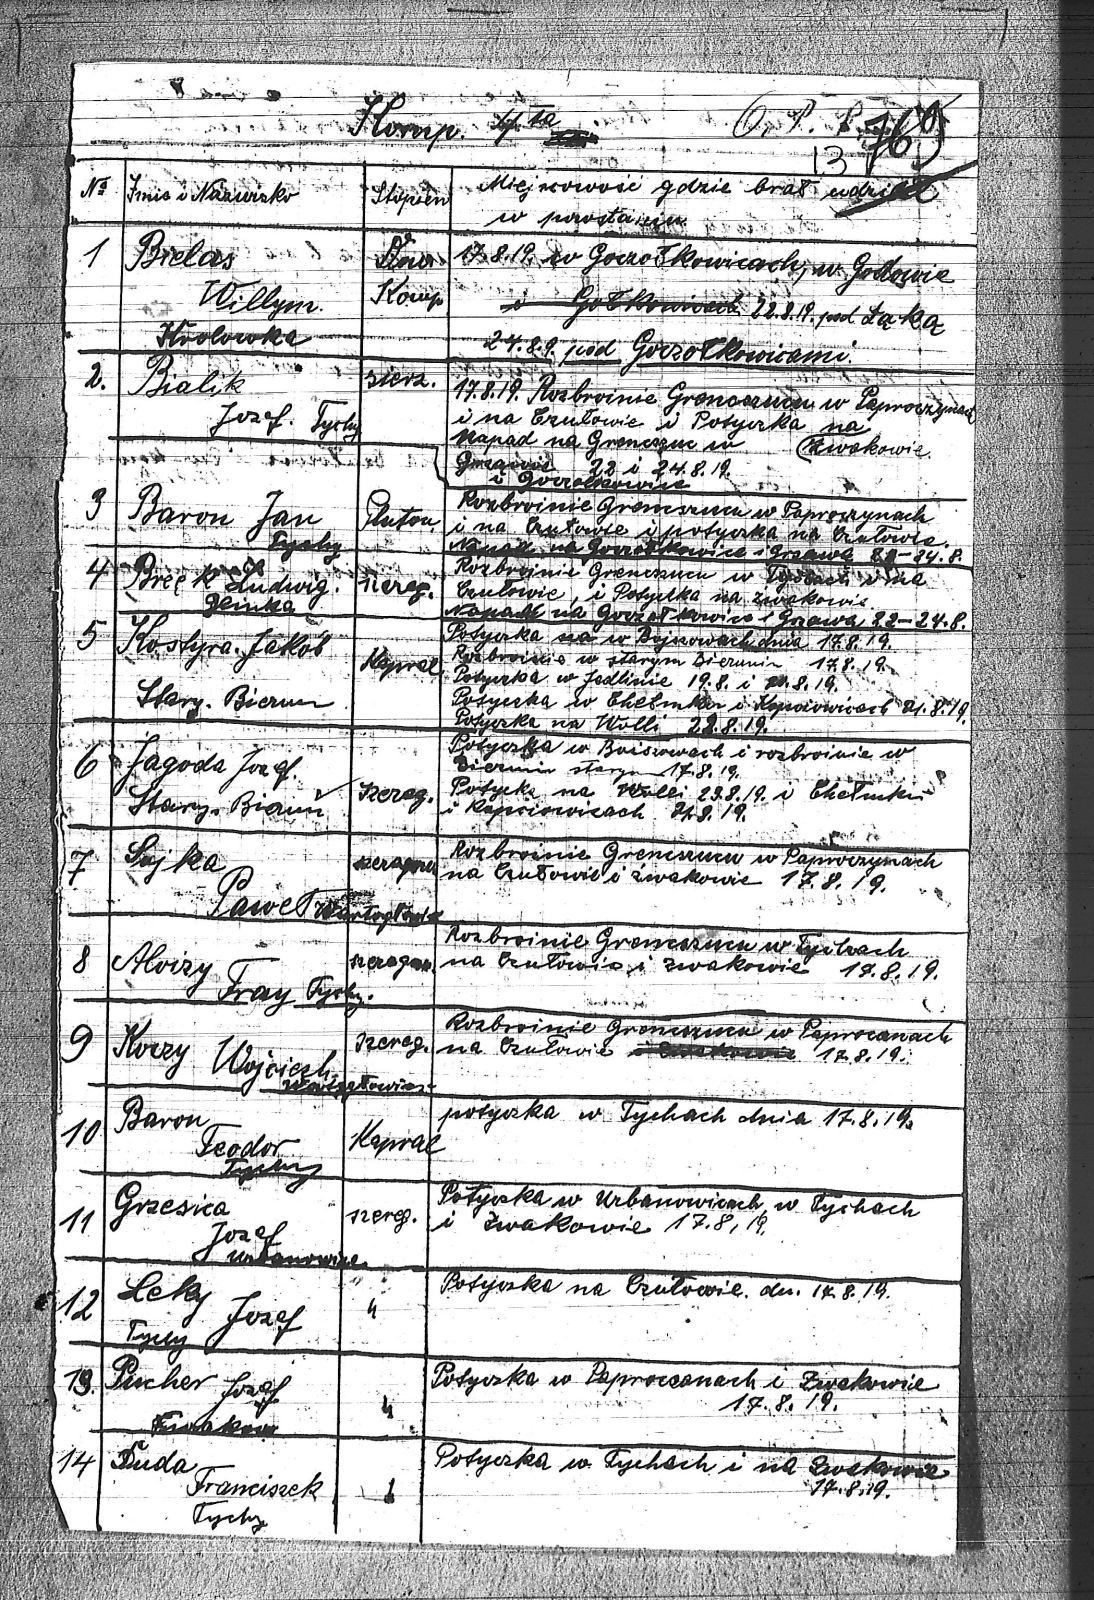 Komp. 4ta
O. P. P.
13 769
No Imie i Nazwisko Stopień Miejscowość gdzie brał udział
w powstaniu
1 Bielas Dow. 17.8.19. w Gorzołkowicach, w Godowie
Willym. Komp i Gołkowicach 22.8.19. pod Łąką
Krolowka 24.8.9. pod Gorzołkowicami.
2. Bialik szerz. 17.8.19. Rozbroinie Grencszucu w Paproczynach
Jozef. Tychy i na Czułowie i Potyczka na
Napad na Grencszuc w Zwakowie.
Grzawie 22 i 24.8.19.
i Gorzołkowice
3 Baron Jan Pluton. Rozbroinie Grencszucu w Paproczynach
Tychy i na Czułowie i potyczka na Czułowie.
Napad na Gorzołkowice i Grzawa 22-24.8.
4 Bręck Ludwig. szereg. Rozbroinie Grencszucu w Tychach i na
Czułowie, i Potyczka na Zwakowie
Napad na Gorzołkowice i Grzawa 22-24.8.
5 Kostyra. Jakób Kapral Potyczka na w Bojszowach dnia 17.8.19.
Rozbroinie w starym Bieruniu 17.8.19.
Potyczka w Jedlinie 19.8. i 20.8.19.
Stary. Bierun Potyczka w Chełmku i Kopciowicach 21.8.19.
Potyczka na Wolli 22.8.19.
6 Jagoda Jozef. szereg. Potyczka w Boiszowach i rozbroinie w
Bieruniu starym 17.8.19.
Stary. Bieruń Potyczka na Wolli 23.8.19. i Chełmku
i Kopciowicach 21.8.19.
7 Sojka szeregowy Rozbroinie Grencszucu w Paproczynach
Paweł Wartogłowie na Czułowie i Zwakowie 17.8.19.
8 Aloizy szeregow. Rozbroinie Grencszucu w Tychach
Fray Tychy. na Czułowie i Zwakowie 17.8.19.
9 Koczy szereg. Rozbroinie Grencszucu w Paprocanach
Wojciech. na Czułowie i Zwakowie 17.8.19.
Wartogłowiec
10 Baron Kapral potyczka w Tychach dnia 17.8.19.
Teodor
Tychy
11 Grzesica szereg. Potyczka w Urbanowicach, w Tychach
Jozef i Zwakowie 17.8.19.
Urbanowice
12 Leky " Potyczka na Czułowie. dn. 17.8.19.
Tychy Jozef
13. Pucher " Potyczka w Paprocanach i Zwakowie
Jozef 17.8.19.
Zwakow
14 Duda " Potyczka w Tychach i na Zwakowie
Franciszek 17.8.19.
Tychy